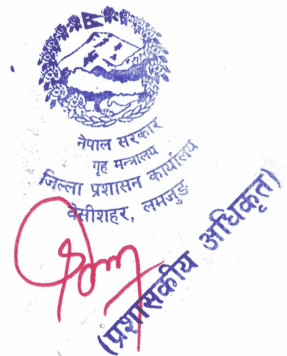 नेपाल सरकार
गृह मन्त्रालय
जिल्ला प्रशासन कार्यालय
बेसीशहर, लमजुङ
(प्रशासकीय अधिकृत)